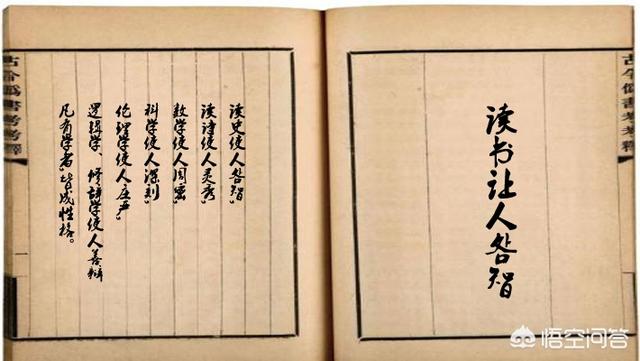 古今僞書考考釋
读书让人咎智
读史使人咎智"
读诗使人灵秀"
数学使人周密"
科学使人深刻"
伦理学使人庄严"
逻辑学、修辞学使人善辩
凡有学者"皆成性格。
古今僞書考考釋
悟空问答